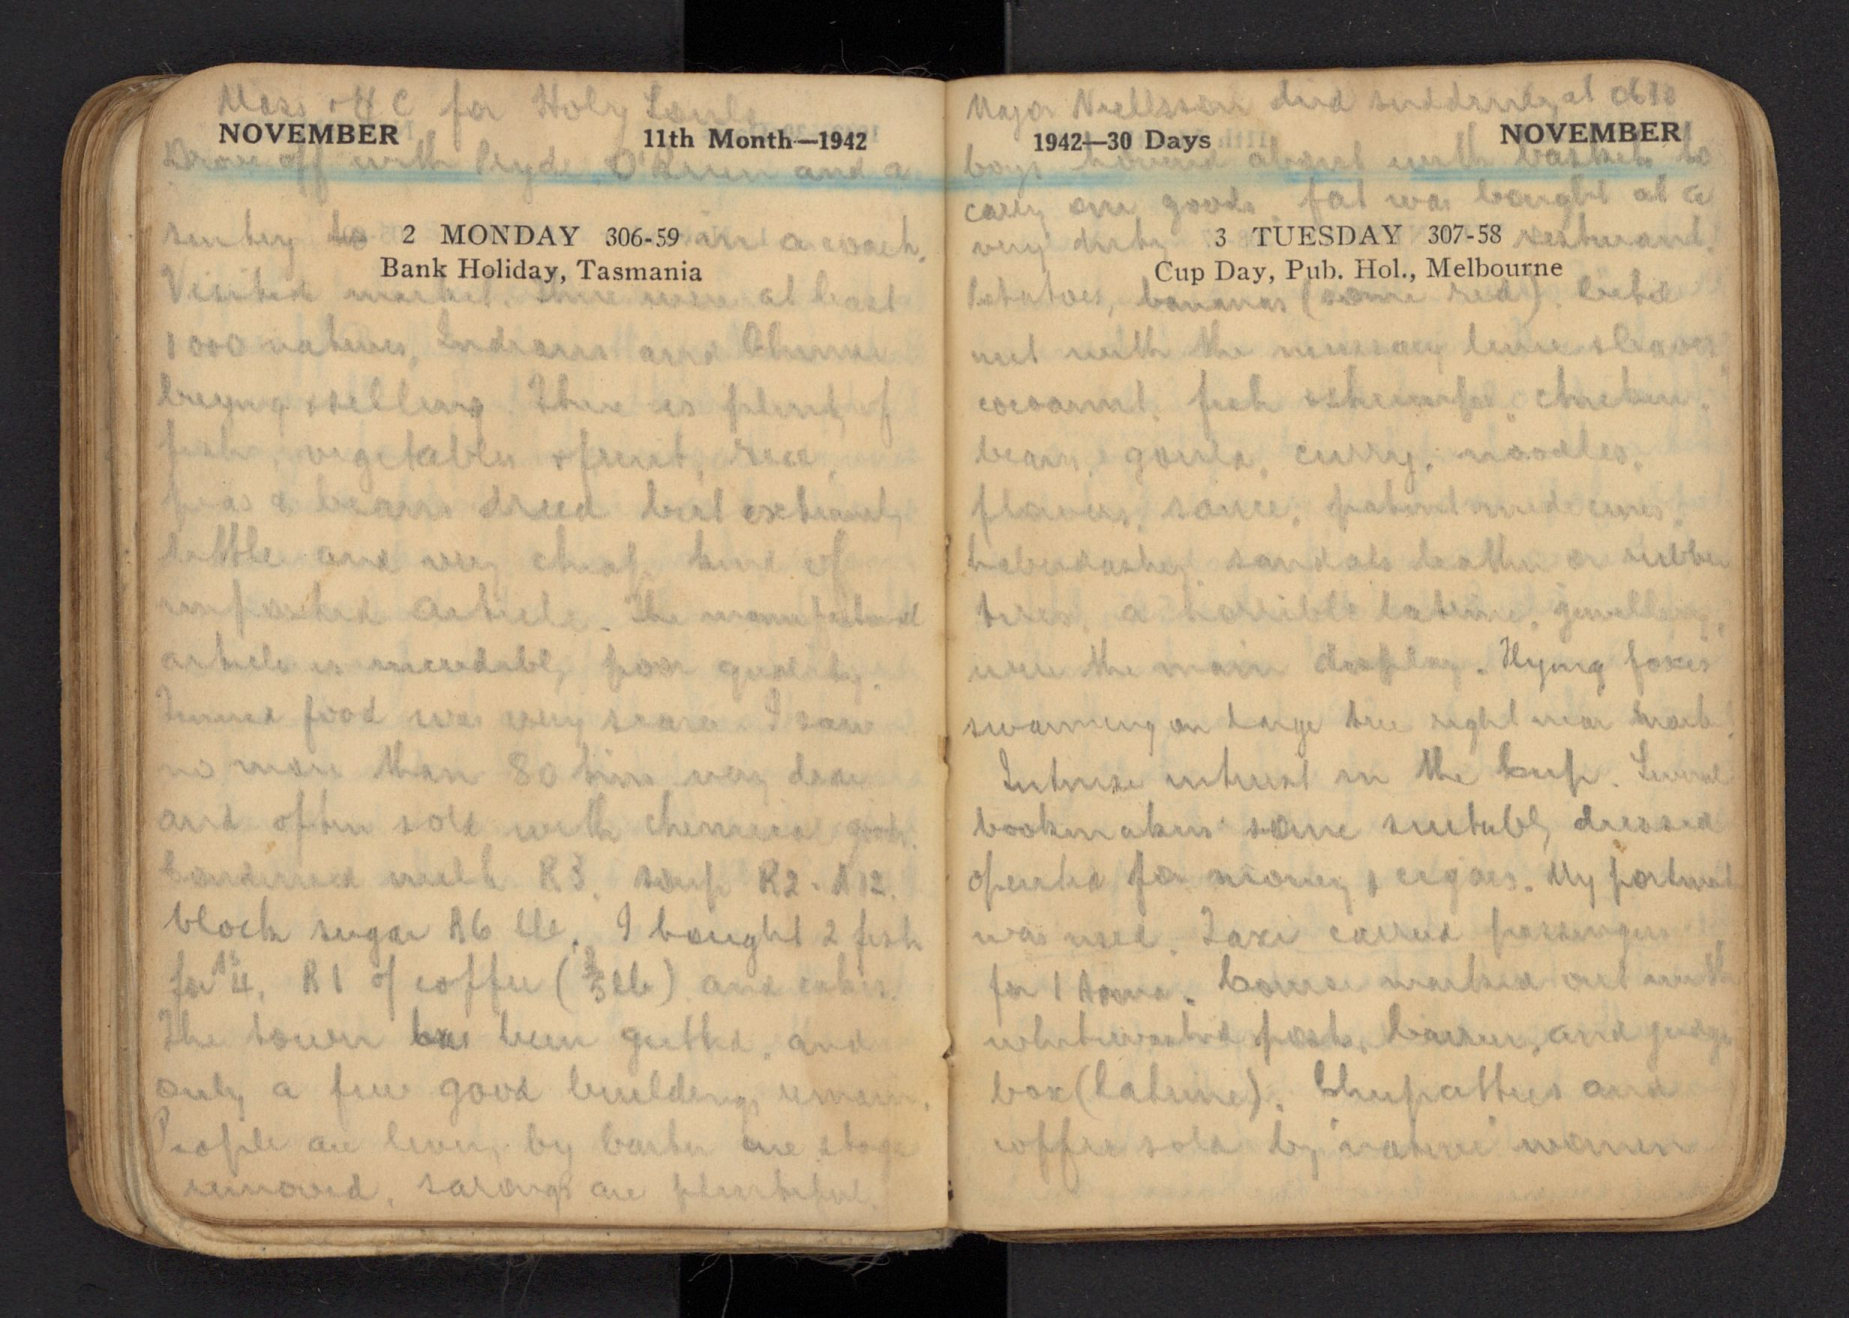 Mass & H C for Holy Souls
NOVEMBER 11th Month—1942
Drove off with Clyde, O'Brien and a
sentry to in a coach.
2 MONDAY 306-59
Bank Holiday, Tasmania
Visited market. There were at least
1000 natives, Indians and Chinese
buying & selling. There is plenty of
fish, vegetables & fruit, rice,
peas & beans dried but extremely
little and very cheap kind of
imported article. The manufactured
article is incredibly poor quality.
Tinned food was very scarce. I saw
no more than 80 tins very dear
and often sold with chemical goods.
Condensed milk R3. soup R2. A12.
block sugar R6 lb. I bought 2 fish
for As 4, R1 of coffee ( lb) and cakes.
The town has been gutted, and
only a few good buildings remain.
People are living by barter one stage
removed, sarongs are plentiful.
Major died suddenly at 0610
1942—30 Days NOVEMBER
boys hovered about with baskets to
carry our goods. Fat was bought at a
very dirty restaurant.
3 TUESDAY 307-58
Cup Day, Pub. Hol., Melbourne
Potatoes, bananas (some red). Betel
nut with the necessary lime & leaves
cocoanut, fish & shrimps, chicken,
beans, gourds, curry, noodles,
flowers, sauce, patent medicines,
haberdashery, sandals leather or rubber
tires, a horrible latrine, jewellery,
were the main display. Flying foxes
swarming on large tree right near market.
Intense interest in the Cup. Several
bookmakers some suitably dressed
operated for money & cigars. My portrait
was used. Taxi carried passengers
for 1 Anna. Course marked out with
whitewashed posts, barrier, and judges
box (latrine). Chupatties and
coffee sold by "native" women